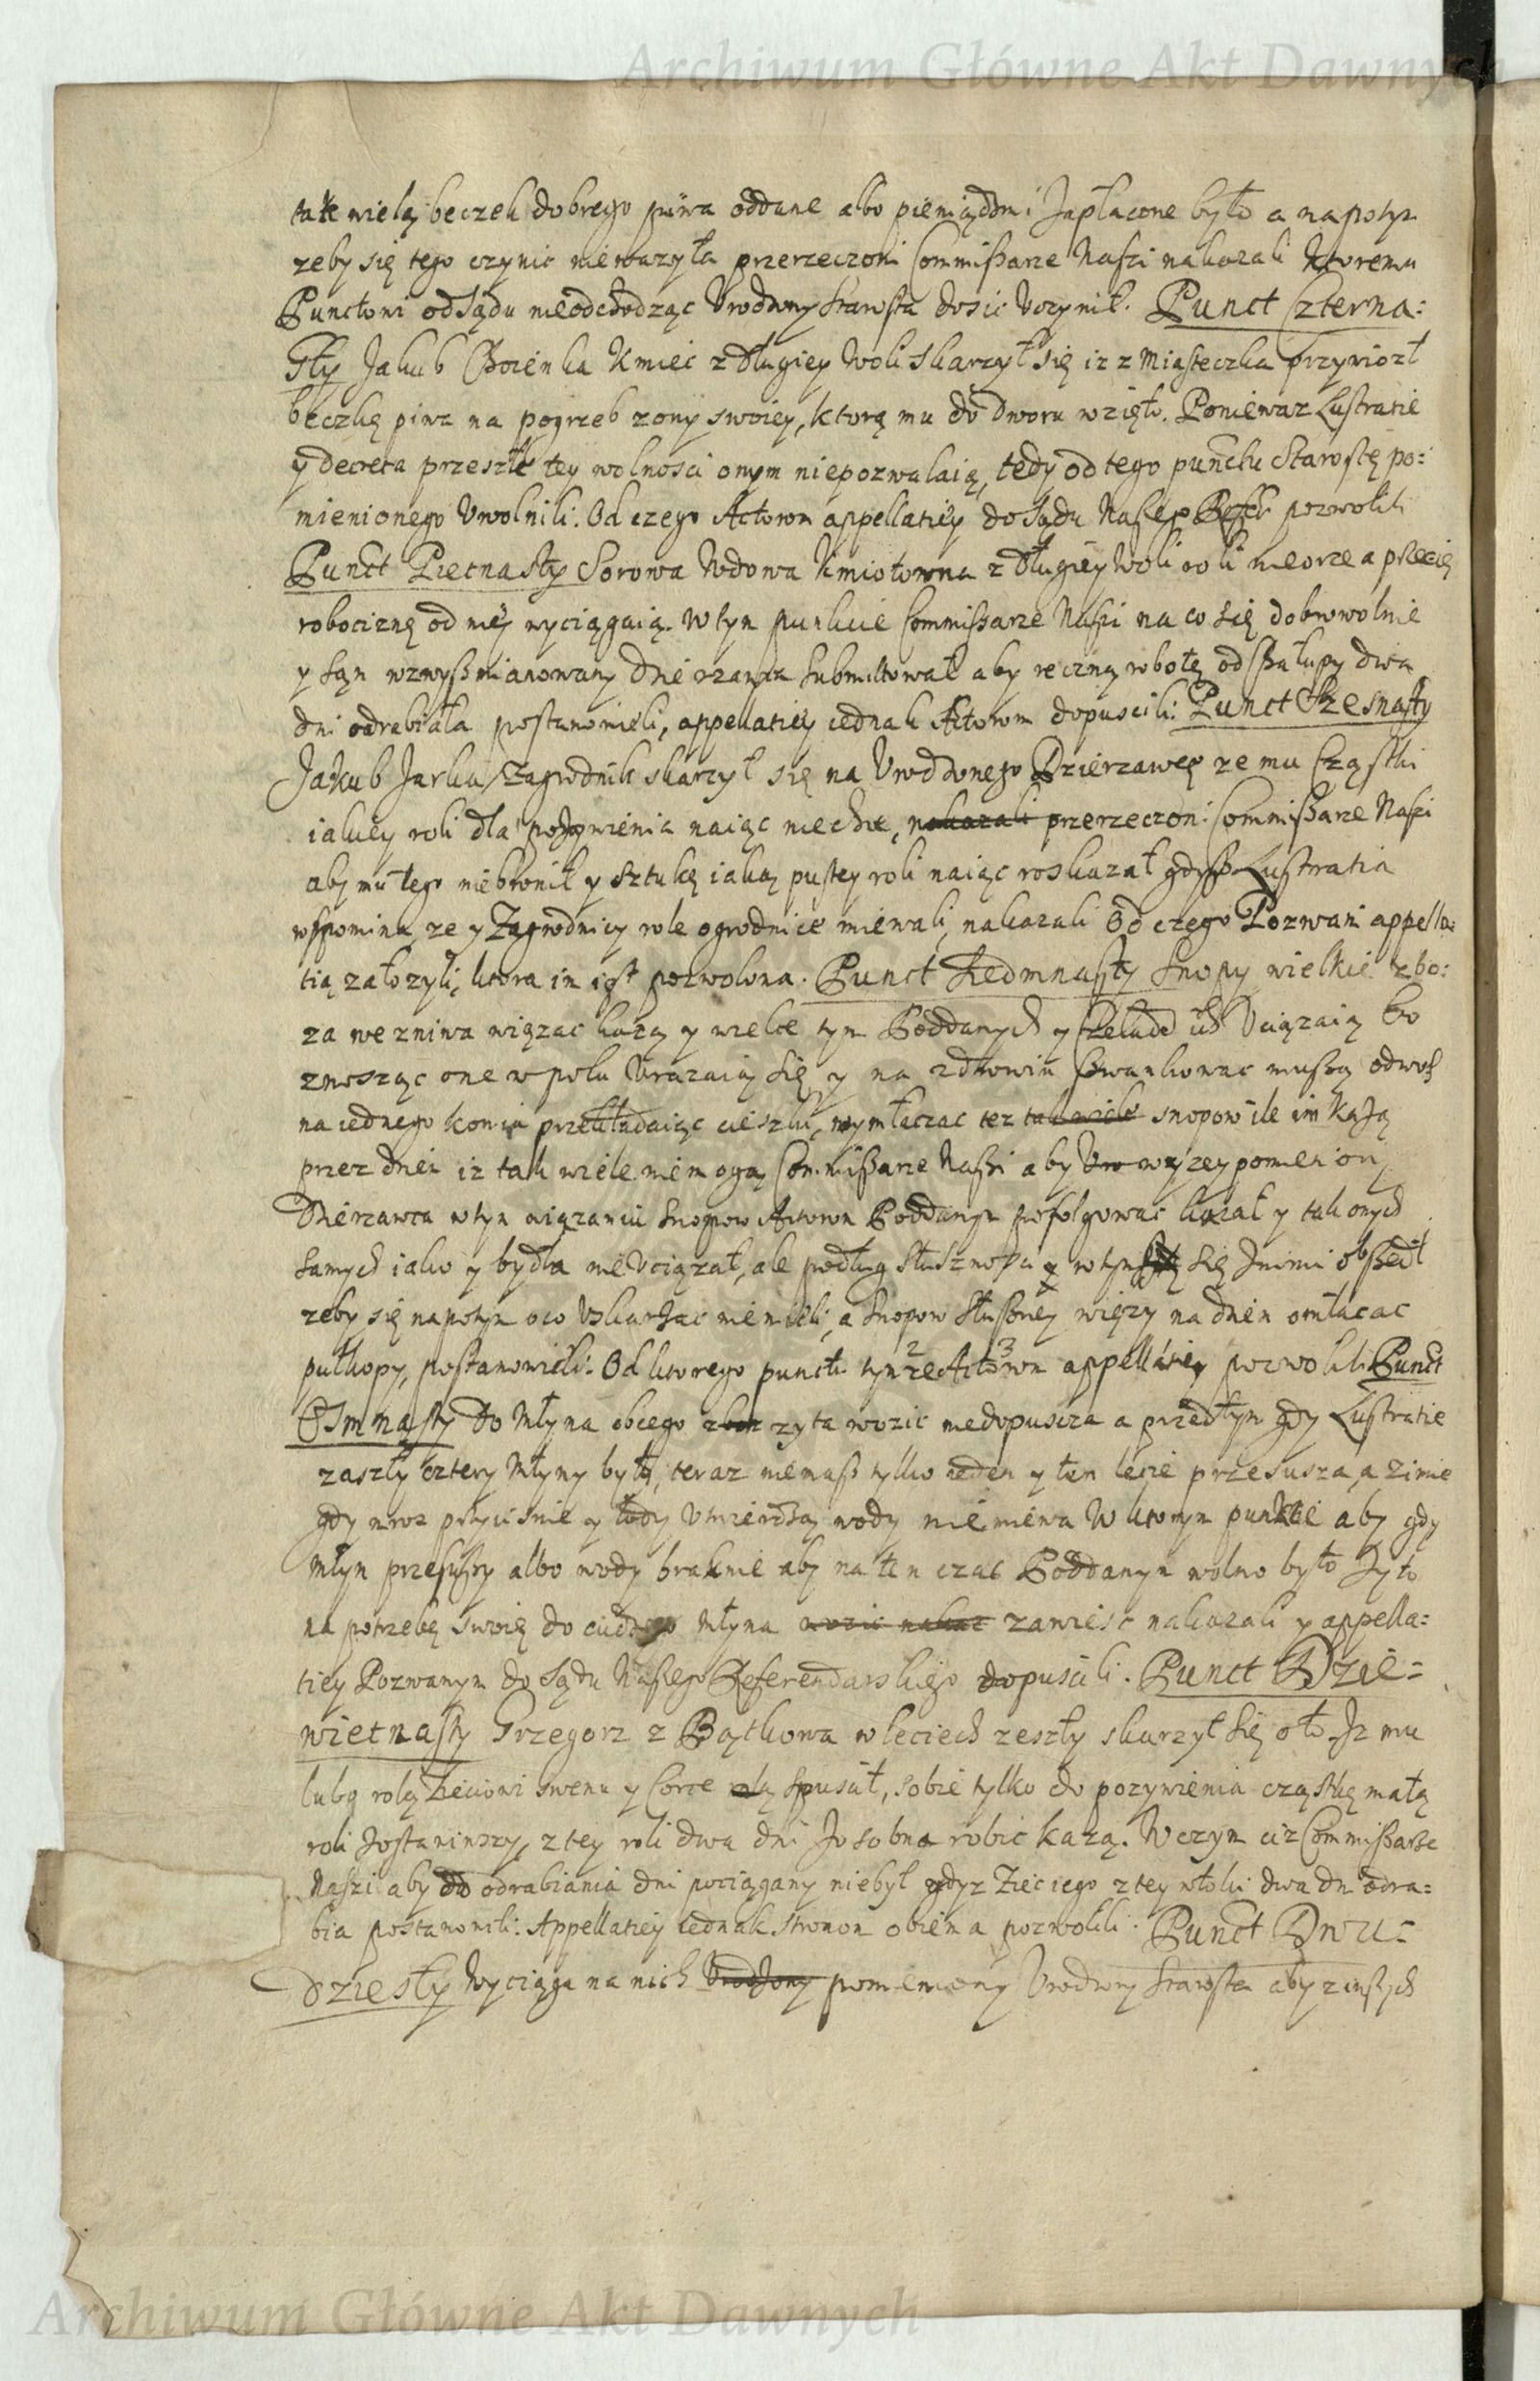 Archiwum Główne Akt Dawnych
tak wielą beczek dobrego piwa oddane albo pieniądzmi Zapłacone było a napotym
zeby się tego czynic niewazyła przerzeczoni Commißarze Naszi nakazali Ktoremu
Punctowi od Sądu nieodchodząc Vrodzony Starosta dosic Vczynił. Punct Czterna:
Sty Jakub Kmiec z Długiey Woli skarzył się iz z Miasteczka przywiozł
beczkę piwa na pogrzeb zony swoiey, ktorą mu do dworu wzięto. Poniewaz Lustratie
y decreta przeszłe tey wolnosci onym niepozwalaią, tedy od tego punctu Starostę po:
mienionego Vwolnili. Od czego Actorom appellatiey do Sądu Naszego pozwolili
Punct Piętnasty Sorowa Wdowa Kmiotowna z Długiey Woli roli nieorze a przecię
robociznę od niey wyciągaią. W tym punkcie Commißarze Naszi na co się dobrowolnie
y sąn wzwyß mianowany Dzierzawca Submittował aby ręczną robotę od chałupy dwa
dni odrabiała postanowieli, appellatiey iednak Actorom dopuscili: Punct Szesnasty
Jakub Jarka Zagrodnik skarzył się na Vrodzonego Dzierzawcę ze mu Cząstki
iakiey roli dla pozywienia naiąc niechce, nakazali przerzeczoni Commißarze Naszi
aby mu tego niebronił y sztukę iaką pustey roli naiąc roskazał gdyß Lustratia
wspomina ze y Zagrodnicy role ogrodnice miewali, nakazali Od czego Pozwani appella:
tią załozyli, ktora im iest pozwolona. Punct Siedmnasty Snopy wielkie zbo:
za we zniwa wiązac kazą y wielce tym Poddanych y Czeladz ich Vciązaią bo
znosząc one w polu Vrazaią się y na zdrowiu szwankowac muszą odwoß
na iednego konia przekładaiąc cieszki, wymłaczac tez tak wiele snopow ile im kazą
przez dzien iz tak wiele niemogą Commißarze Naszi aby Vro wyzey pomieniony
Dzierzawca w tym wiązaniu Snopow Actorom Poddanym pofolgowac kazał y tak onych
samych iako y bydła nie Vciązał, ale podług Słusznosci y w tym się Znimi obßedł
zeby się napotym oco Vskarzac niemieli, a Snopow Słußney więzy na dzien omłacac
pułkopy, postanowieli. Od ktorego punctu tym 2 ze Acto 3 rom appellatiey pozwolili Punct
Osmnasty Do Młyna obcego zboz zyta wozic niedopuscza a przedtym gdy Lustratie
zaszły cztery Młyny były, teraz niemaß tylko ieden y ten lecie przesusza, a zimie
gdy mroz przycisnie y lody Vtwierdzą wody niemiewa W ktorym punkcie aby gdy
Młyn przesußy albo wody braknie aby na ten czas Poddanym wolno było Zyto
na potrzebę swoię do cudzego Młyna wozic nakaz zawiesc nakazali y appella:
tiey Pozwanym do Sądu Naszego Referendarskiego dopuscili. Punct Dzie=
wietnasty Grzegorz z Bątkowa w leciech zeszły skarzył się o to Iz mu
lubo rolą Zieciowi swemu y Corce rolą spuscił, sobie tylko do pozywienia cząstkę małą
roli Zostawiwszy, z tey roli dwa dni Zosobna robic kazą. W czym ciz Commißarze
Naszi aby do odrabiania dni pociągany niebył gdyz Ziec iego z tey włoki dwa dni odra:
bia postanowili: Appellatiey iednak stronom obiema pozwolili. Punct Dwu:
dziesty Wyciąga na nich Vrodzony pomieniony Vrodzony Starosta aby z inszych
Archiwum Główne Akt Dawnych